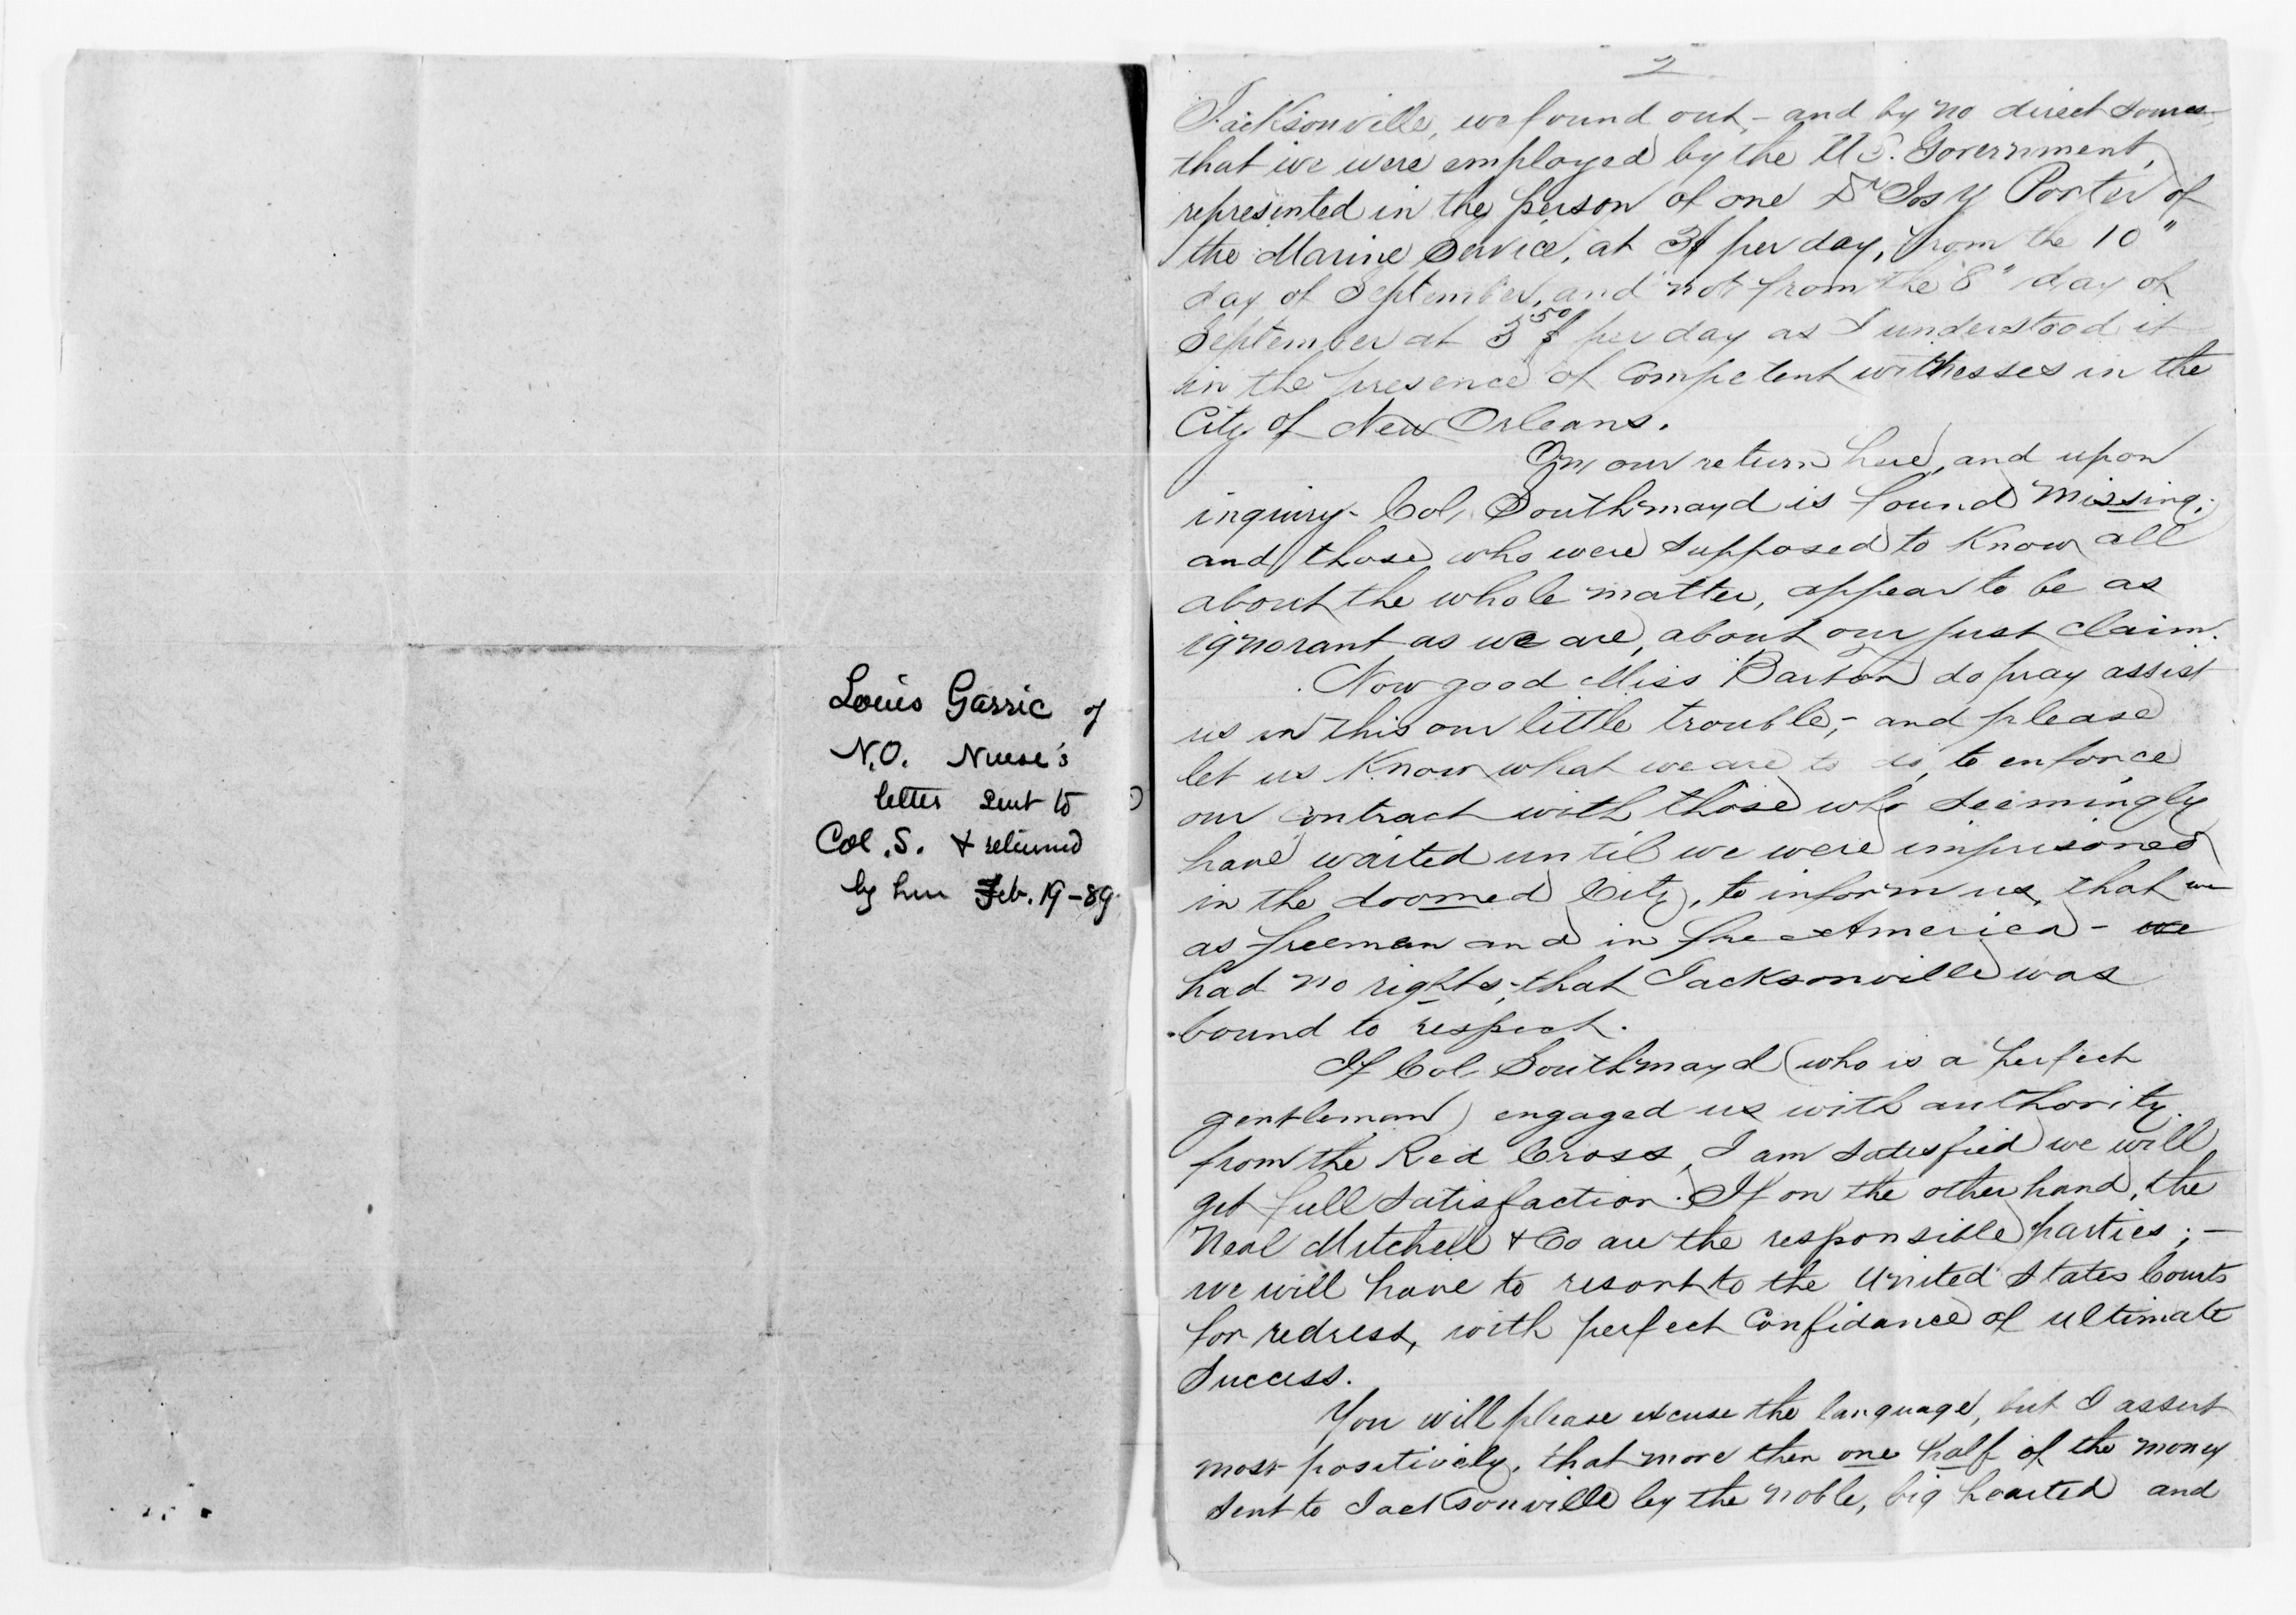 Louis Garric of
N.O. Nurse's
letter sent to
Col. S. & returned
by him Feb. 19-89.
2
Jacksonville, we found out,- and by no direct source,
that we were employed by the U.S. Government,
represented in the person of one Dr Jos Y Porter of
the Marine Service, at 3$ per day, from the 10"
day of September, and not from the 8" day of
September at 3 50 $ per day as I understood it
in the presence of Competent witnesses in the
City of New Orleans.
On our return here, and upon
inquiry- Col, Southmayd is found missing;
and those who were supposed to Know all
about the whole matter, appear to be as
ignorant as we are, about our just claim.
Now good Miss Barton do pray assist
us in this our little trouble,- and please
let us Know what we are to do, to enforce
our contract with those who seemingly
have waited until we were imprisoned
in the doomed City, to inform us, that we
as freeman and in free America - we
had no rights, that Jacksonville was
bound to respect.
If Col, Southmayd (who is a perfect
gentleman) engaged us with authority
from the Red Cross, I am satesfied we will
get full satisfaction. If on the other hand, the
Neal Mitchell & Co are the responsible parties; -
we will have to resort to the United States Courts
for redress, with perfect Confidance of ultimate
success.
You will please excuse the language, but I assert
most positively, that more then one half of the money
sent to Jacksonville by the noble, big hearted and